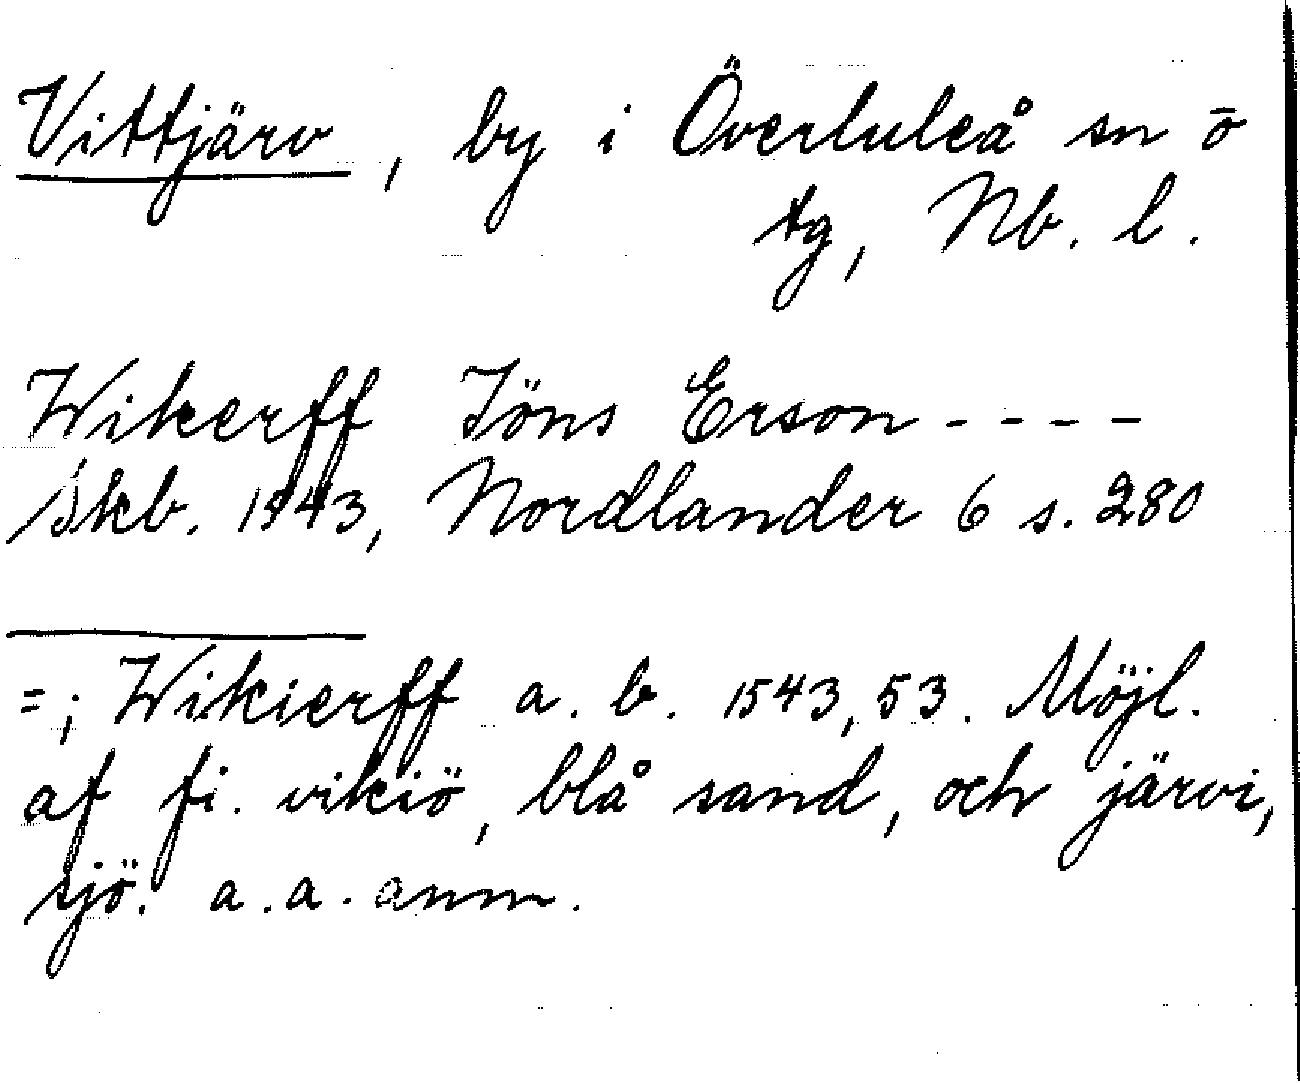 Vittjärv, by i Överluleå sn ō
tg, Nb. l.
Wikerff Jöns Erson ----
Skb. 1543, Nordlander 6 s. 280
=; Wikierff a. b. 1543, 53. Möjl.
af fi. vikiö, blå sand, och järvi,
sjö. a. a. anm.